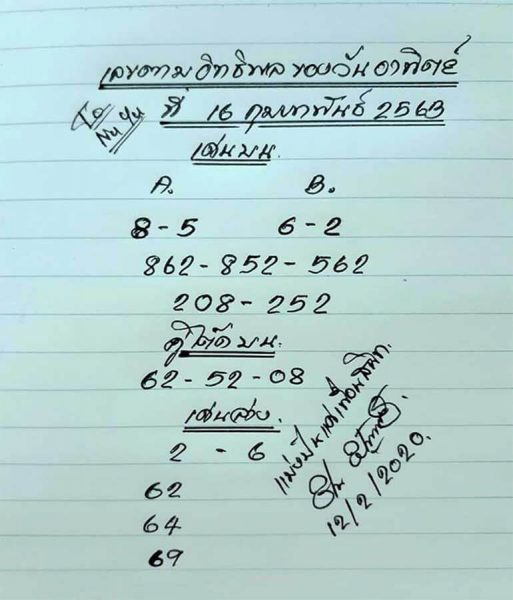 เลขตามอิทธิพลของวันอาทิตย์
ที่ 16 กุมภาพันธ์ 2563
To
Nu Yu
เด่นบน.
A. B.
8-5 6-2
862-852-562
208-252
คู่โต๊ดบน.
62-52-08
เด่นล่าง.
2 - 6
62
64
69
แบ่งปันแด่เพื่อนมิตร.
12/2/2020.